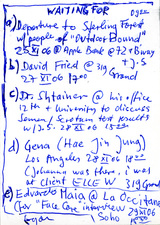 WAITING FOR
a) Departure to Sterling Forest
w/ people of "Outdoor Bound"
25 XI 06 @ Apple Bank @ 72 & Bway
b) David Fried @ 319 + J.S
27 XI 06 1700 Grand
c) Dr. Shtainer @ his office
12th + University to discuss
Semen/Scrotum test results
w/ J.S. 28 XI 06
d) Gena (Hae Jin Jung)
Los Angeles 28 XI 06
(Johanna was there, i was
at client ELLE W 319 Grand
e) Eduardo Maia @ La Occitane
(for "Face Care interview 29 XI 06
Soho